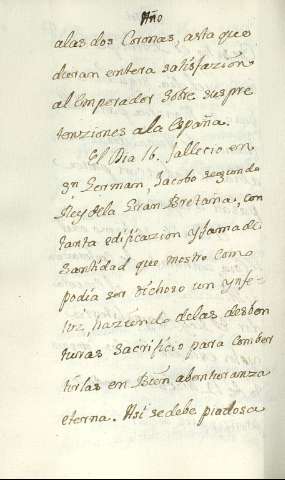 Año
alas dos Coronas, asta que
dieran entera satisfazion
al Emperador sobre sus pre
tenziones ala España.
El Dia 16. fallecio en
Sn German, Jacobo segundo
Rey dela Gran Bretaña, con
tanta edificazion y fama de
Santidad que mostro como
podia ser dichoso un ynfe-
liz, haziendo delas desben
turas sacrificio para comber
tirlas en Bien abenturanza
eterna. Asi se debe piadosa